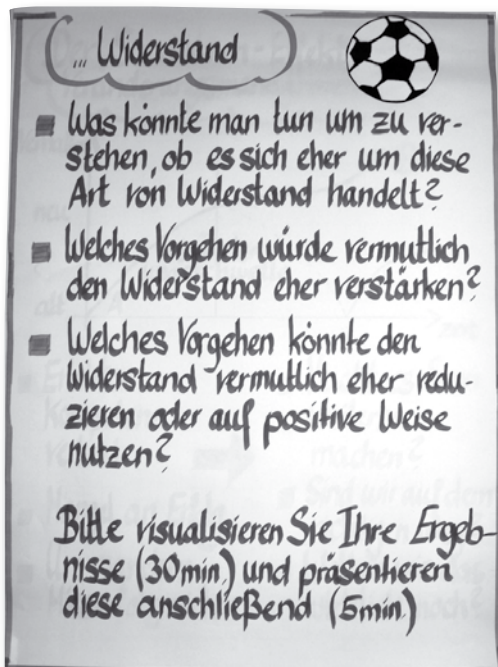 ... Widerstand
Was könnte man tun um zu ver-
stehen, ob es sich eher um diese
Art von Widerstand handelt?
Welches Vorgehen würde vermutlich
den Widerstand eher verstärken?
Welches Vorgehen könnte den
Widerstand vermutlich eher redu-
zieren oder auf positive Weise
nutzen?
Bitte visualisieren Sie Ihre Ergeb-
nisse (30min.) und präsentieren
diese anschließend (5min.)